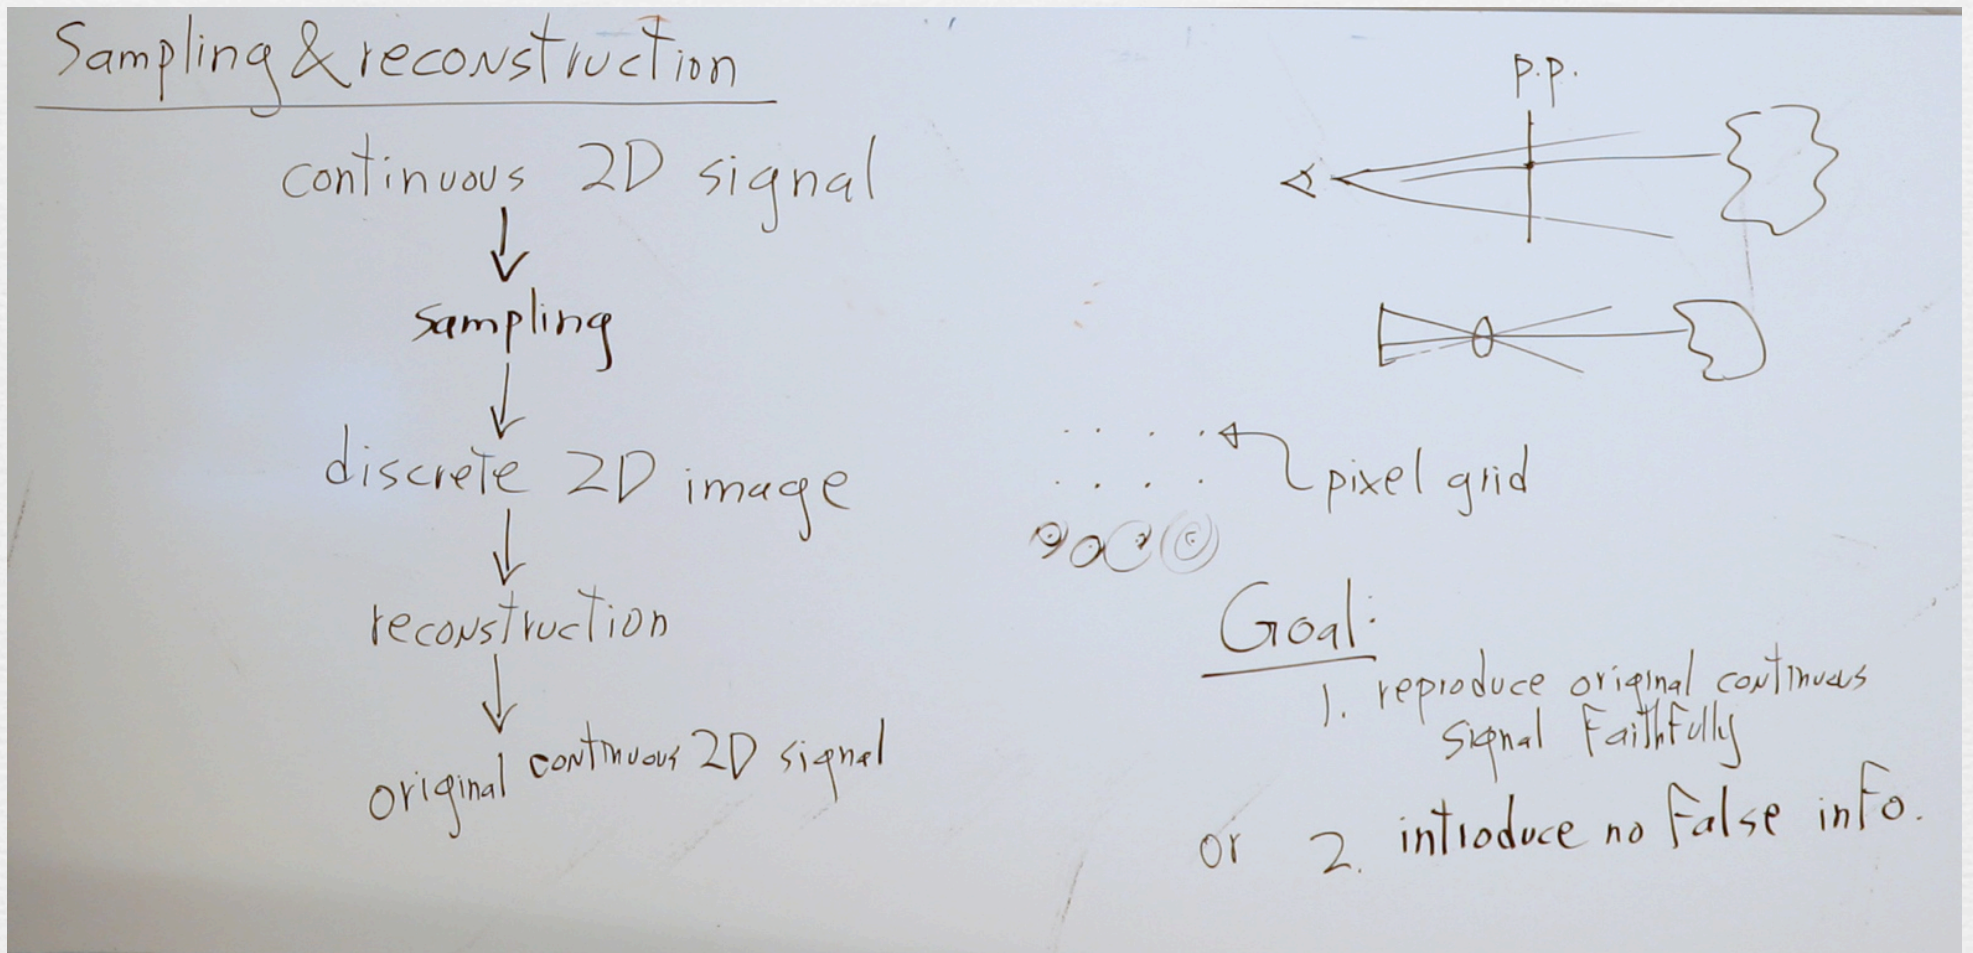 Sampling & reconstruction
continuous 2D signal
sampling
discrete 2D image
reconstruction
original continuous 2D signal
P.P.
pixel grid
Goal:
1. reproduce original continuous
signal faithfully
or 2. introduce no false info.